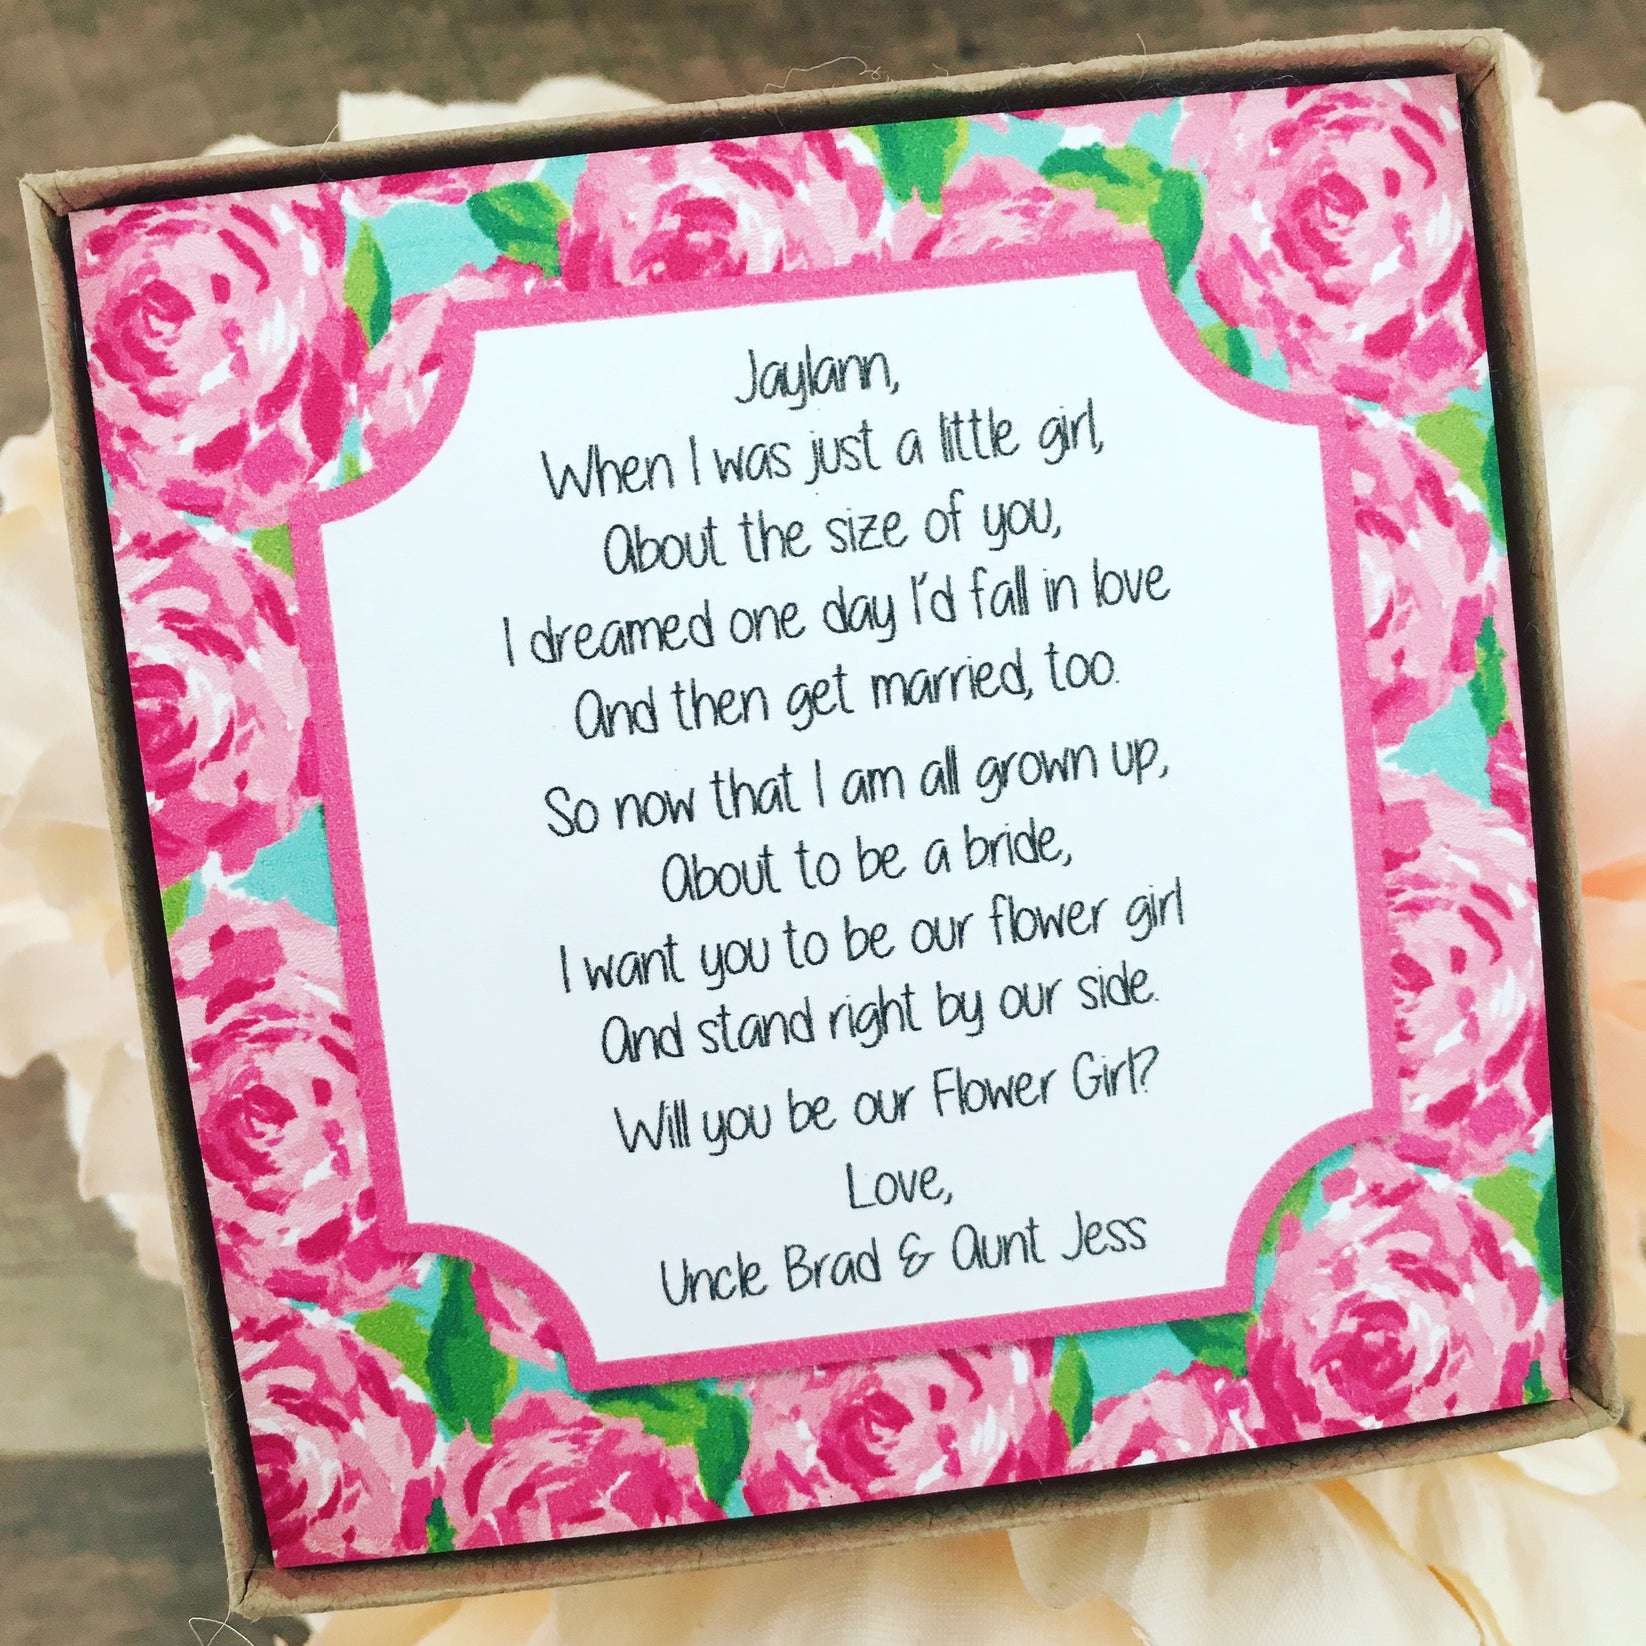 Jaylann,
When I was just a little girl,
About the size of you,
I dreamed one day I'd fall in love
And then get married, too.
So now that I am all grown up,
About to be a bride,
I want you to be our flower girl
And stand right by our side.
Will you be our Flower Girl?
Love,
Uncle Brad & Aunt Jess